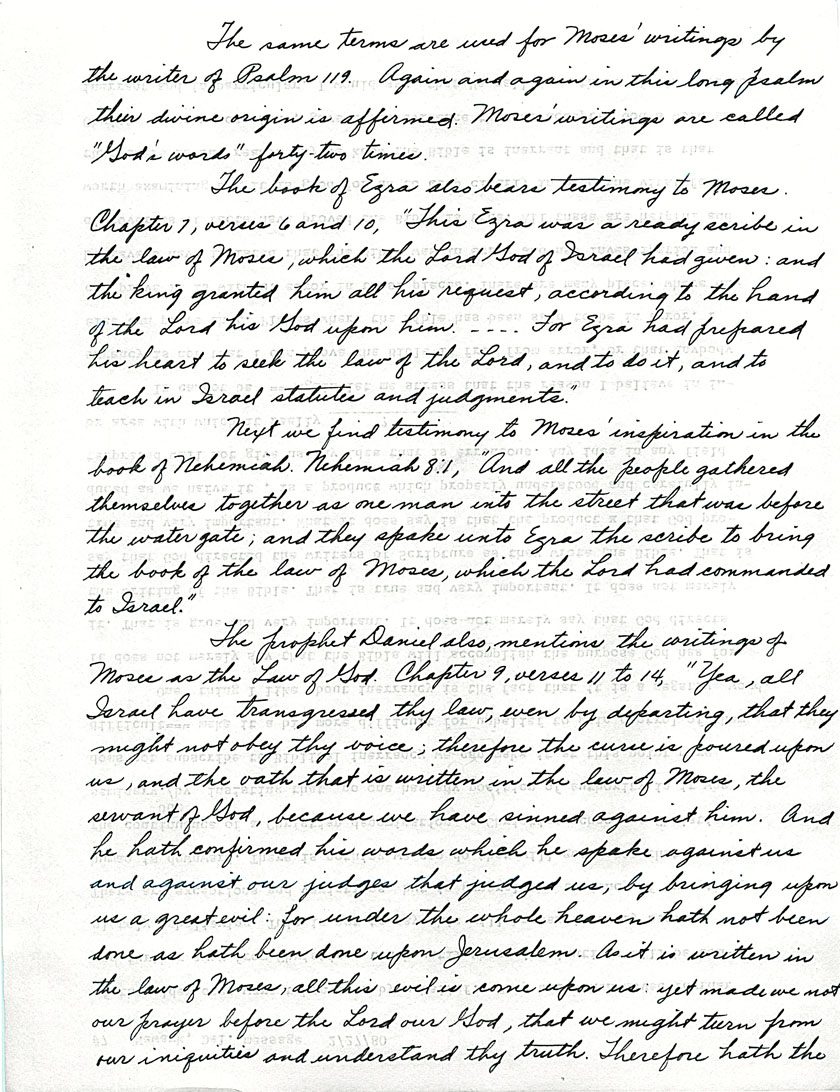 The same terms are used for Moses' writings by
the writer of Psalm 119. Again and again in this long psalm
their divine origin is affirmed. Moses' writings are called
"God's words" forty-two times.
The book of Ezra also bears testimony to Moses.
Chapter 7, verses 6 and 10, "This Ezra was a ready scribe in
the law of Moses, which the Lord God of Israel had given: and
the king granted him all his request, according to the hand
of the Lord his God upon him. ---- For Ezra had prepared
his heart to seek the law of the Lord, and to do it, and to
teach in Israel statutes and judgments."
Next we find testimony to Moses' inspiration in the
book of Nehemiah. Nehemiah 8:1, "And all the people gathered
themselves together as one man into the street that was before
the water gate; and they spake unto Ezra the scribe to bring
the book of the law of Moses, which the Lord had commanded
to Israel."
The prophet Daniel also, mentions the writings of
Moses as the Law of God. Chapter 9, verses 11 to 14, "Yea, all
Israel have transgressed thy law, even by departing, that they
might not obey thy voice; therefore the curse is poured upon
us, and the oath that is written in the law of Moses, the
servant of God, because we have sinned against him. And
he hath confirmed his words which he spake against us
and against our judges that judged us, by bringing upon
us a great evil: for under the whole heaven hath not been
done as hath been done upon Jerusalem. As it is written in
the law of Moses, all this evil is come upon us: yet made we not
our prayer before the Lord our God, that we might turn from
our iniquities and understand thy truth. Therefore hath the